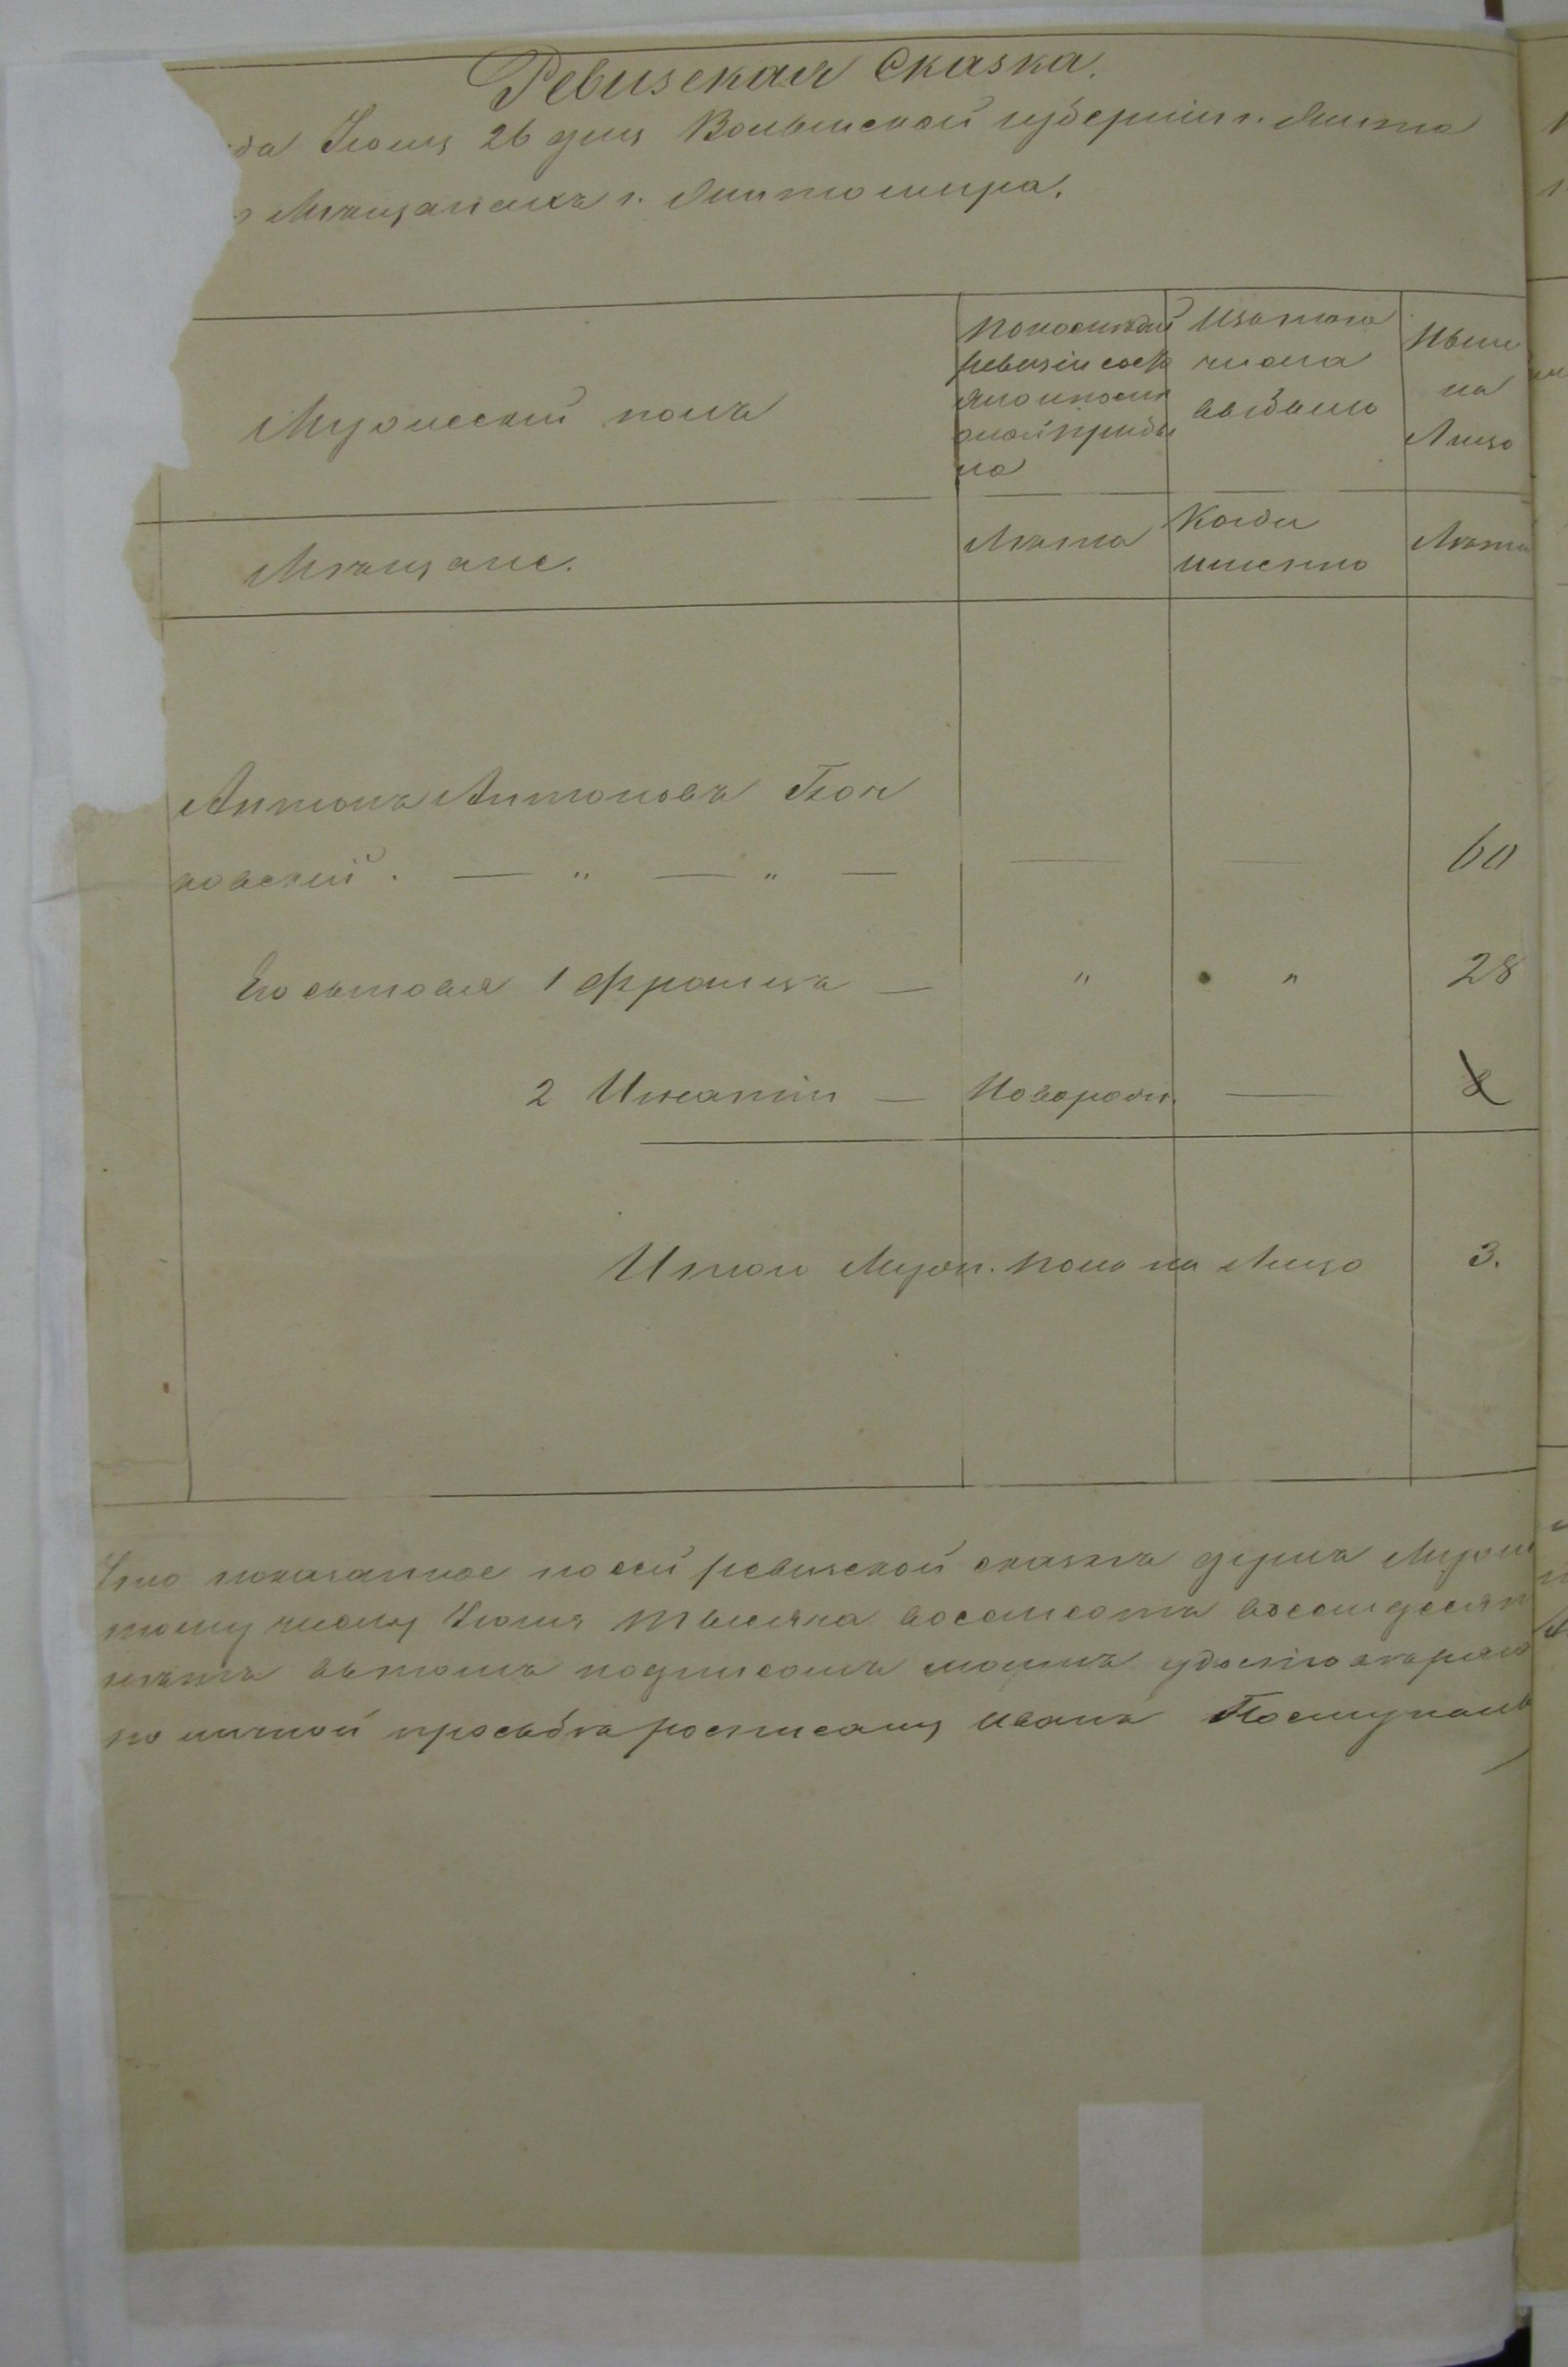 Ревизская Сказка.
да Іюня 26 дня Волынской губерніи г. Жито
Мѣщанахъ г. Житомира.
Мужескій полъ
По последней
ревизіи состо
яло и после
оной прибы
ло
Изъ того
числа
выбыло
Ныне
на
Лицо
Мѣщане.
Лѣта
Когда
именно
Лѣта
Антонъ Антоновъ
ковскій. — " — " — — — 60
Его сыновья 1 Францъ — " " 28
2 Игнатій — Новорожд. — 8
Итого Мужс. пола на Лицо 3.
Что показанное по сей ревизской сказкѣ душъ Мужс
тому числу Іюня Тысяча восемьсотъ восемдесят
въ томъ подписомъ моимъ удостоверяю
по личной просьбѣ росписался Иванъ